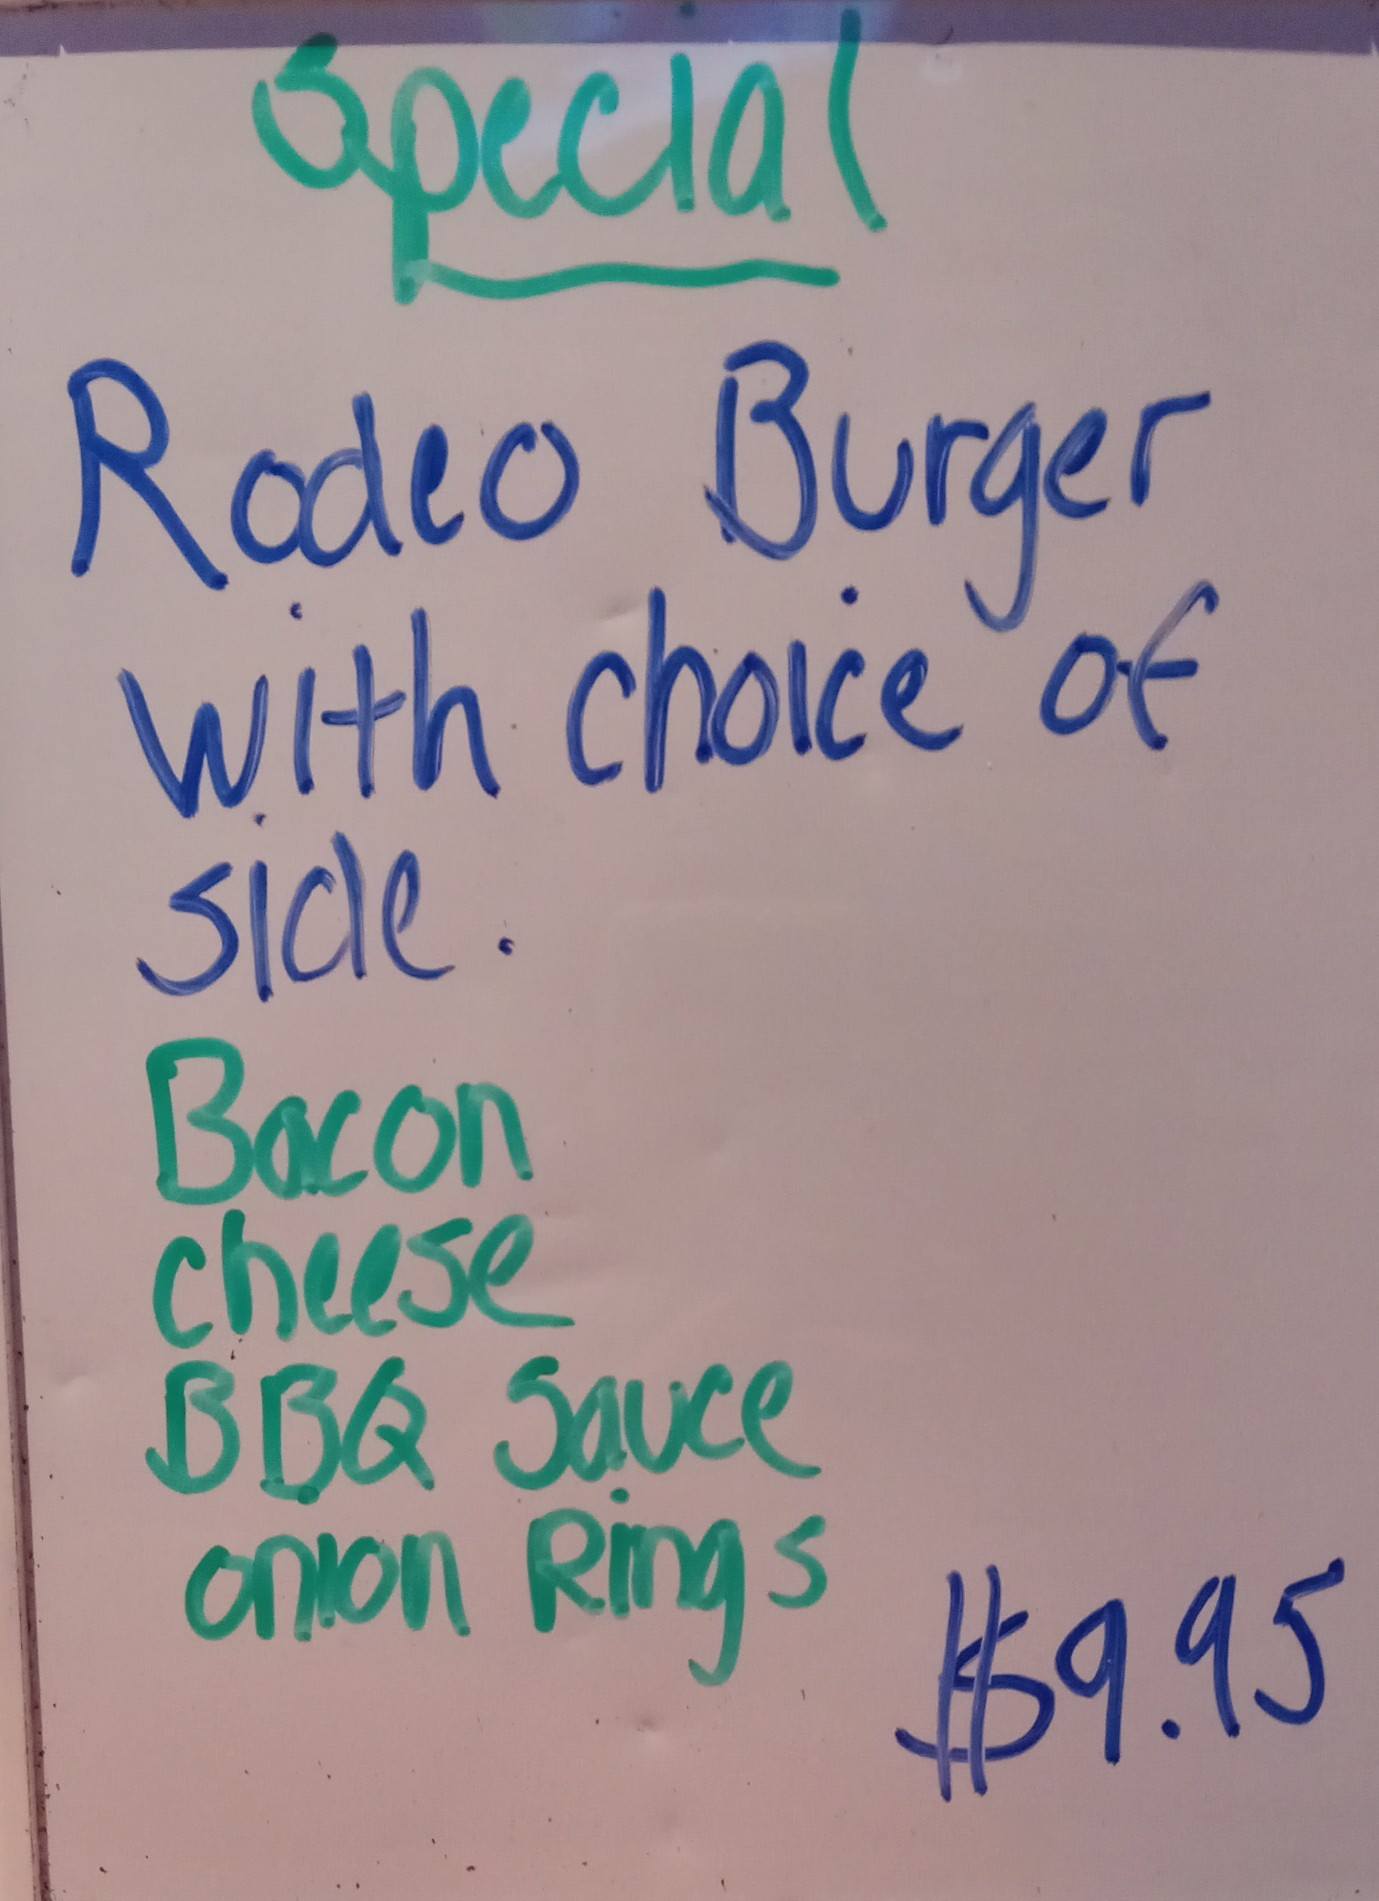 Special
Rodeo Burger
with choice of
side.
Bacon
cheese
BBQ Sauce
onion Rings
$9.95